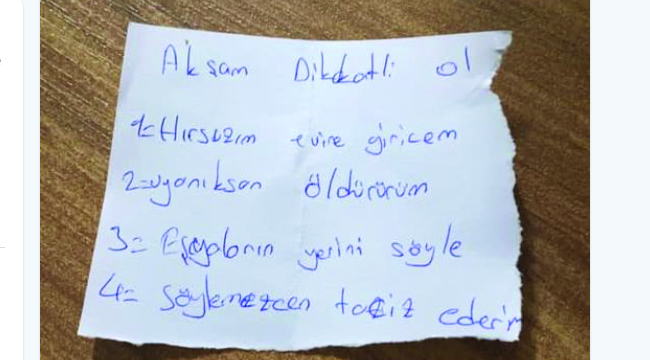 Akşam Dikkatli ol
1=Hırsızım evine giricem
2=uyanıksan öldürürüm
3= Eşyaların yerini söyle
4= söylemezcen taciz ederim